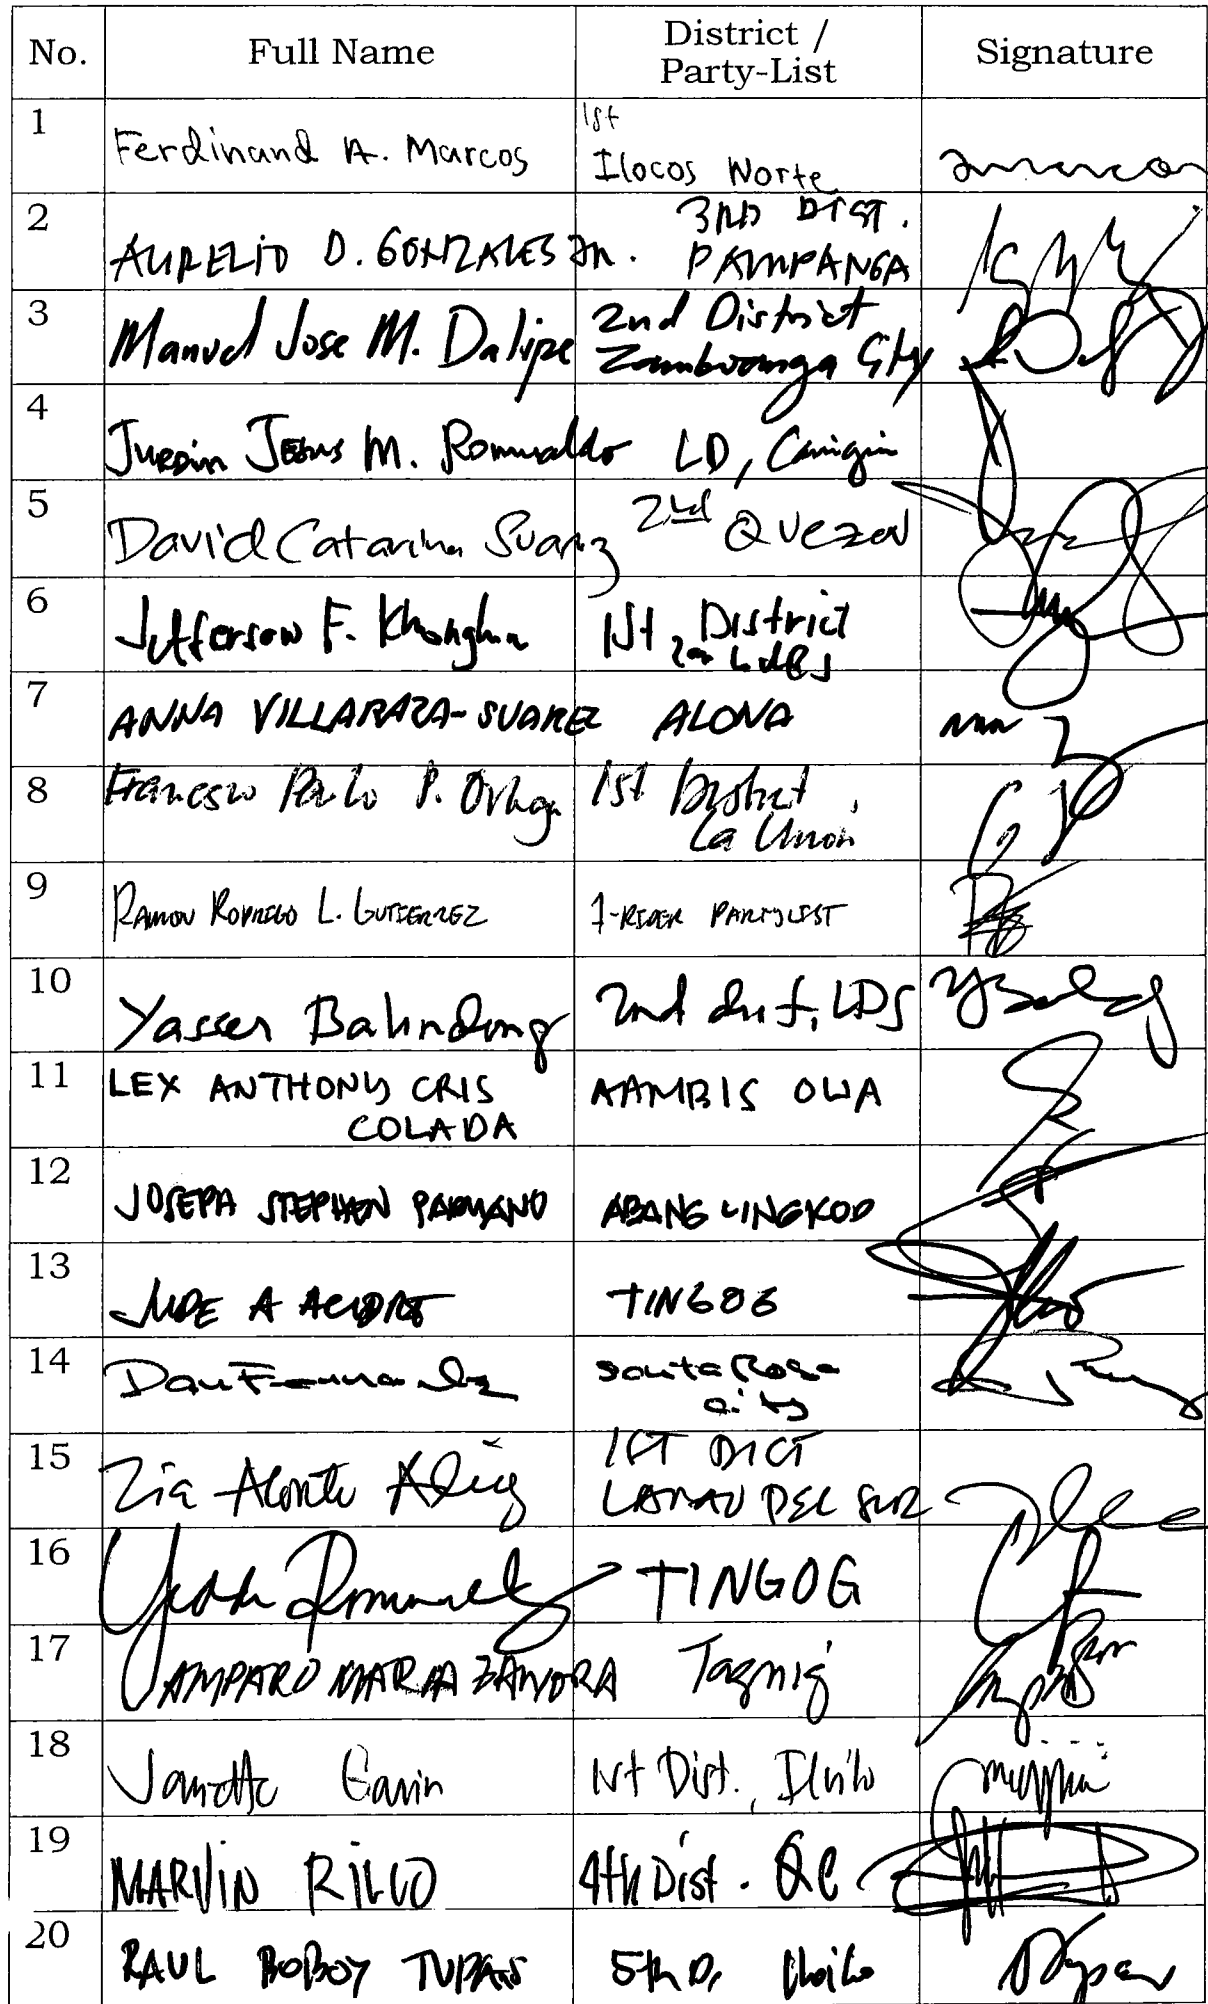 No. Full Name District / Party-List Signature
1 Ferdinand A. Marcos 1st Ilocos Norte
2 AURELIO D. GONZALES JR. 3RD DIST. PAMPANGA
3 Manuel Jose M. Dalipe 2nd District Zamboanga City
4 Jurdin Jesus M. Romualdo LD, Camiguin
5 David Catarina Suarez 2nd Quezon
6 Jefferson F. Khonghun 1st District Zambales
7 ANNA VILLARAZA-SUAREZ ALONA
8 Francisco Paolo P. Ortega 1st District, La Union
9 RAMON RODRIGO L. GUTIERREZ 1-RIDER PARTYLIST
10 Yasser Balindong 2nd dist, LDS
11 LEX ANTHONY CRIS COLADA AAMBIS OWA
12 JOSEPH STEPHEN PADUANO ABANG LINGKOD
13 JUDE A ACIDRE TINGOG
14 Dan Fernandez Santa Rosa city
15 Zia Alonto Adiong 1ST DIST LANAO DEL SUR
16 Yedda Romualdez TINGOG
17 AMPARO MARIA ZAMORA Taguig
18 Janette Garin 1st Dist., Iloilo
19 MARVIN RILLO 4th Dist. QC
20 RAUL BOBOY TUPAS 5th D, Iloilo